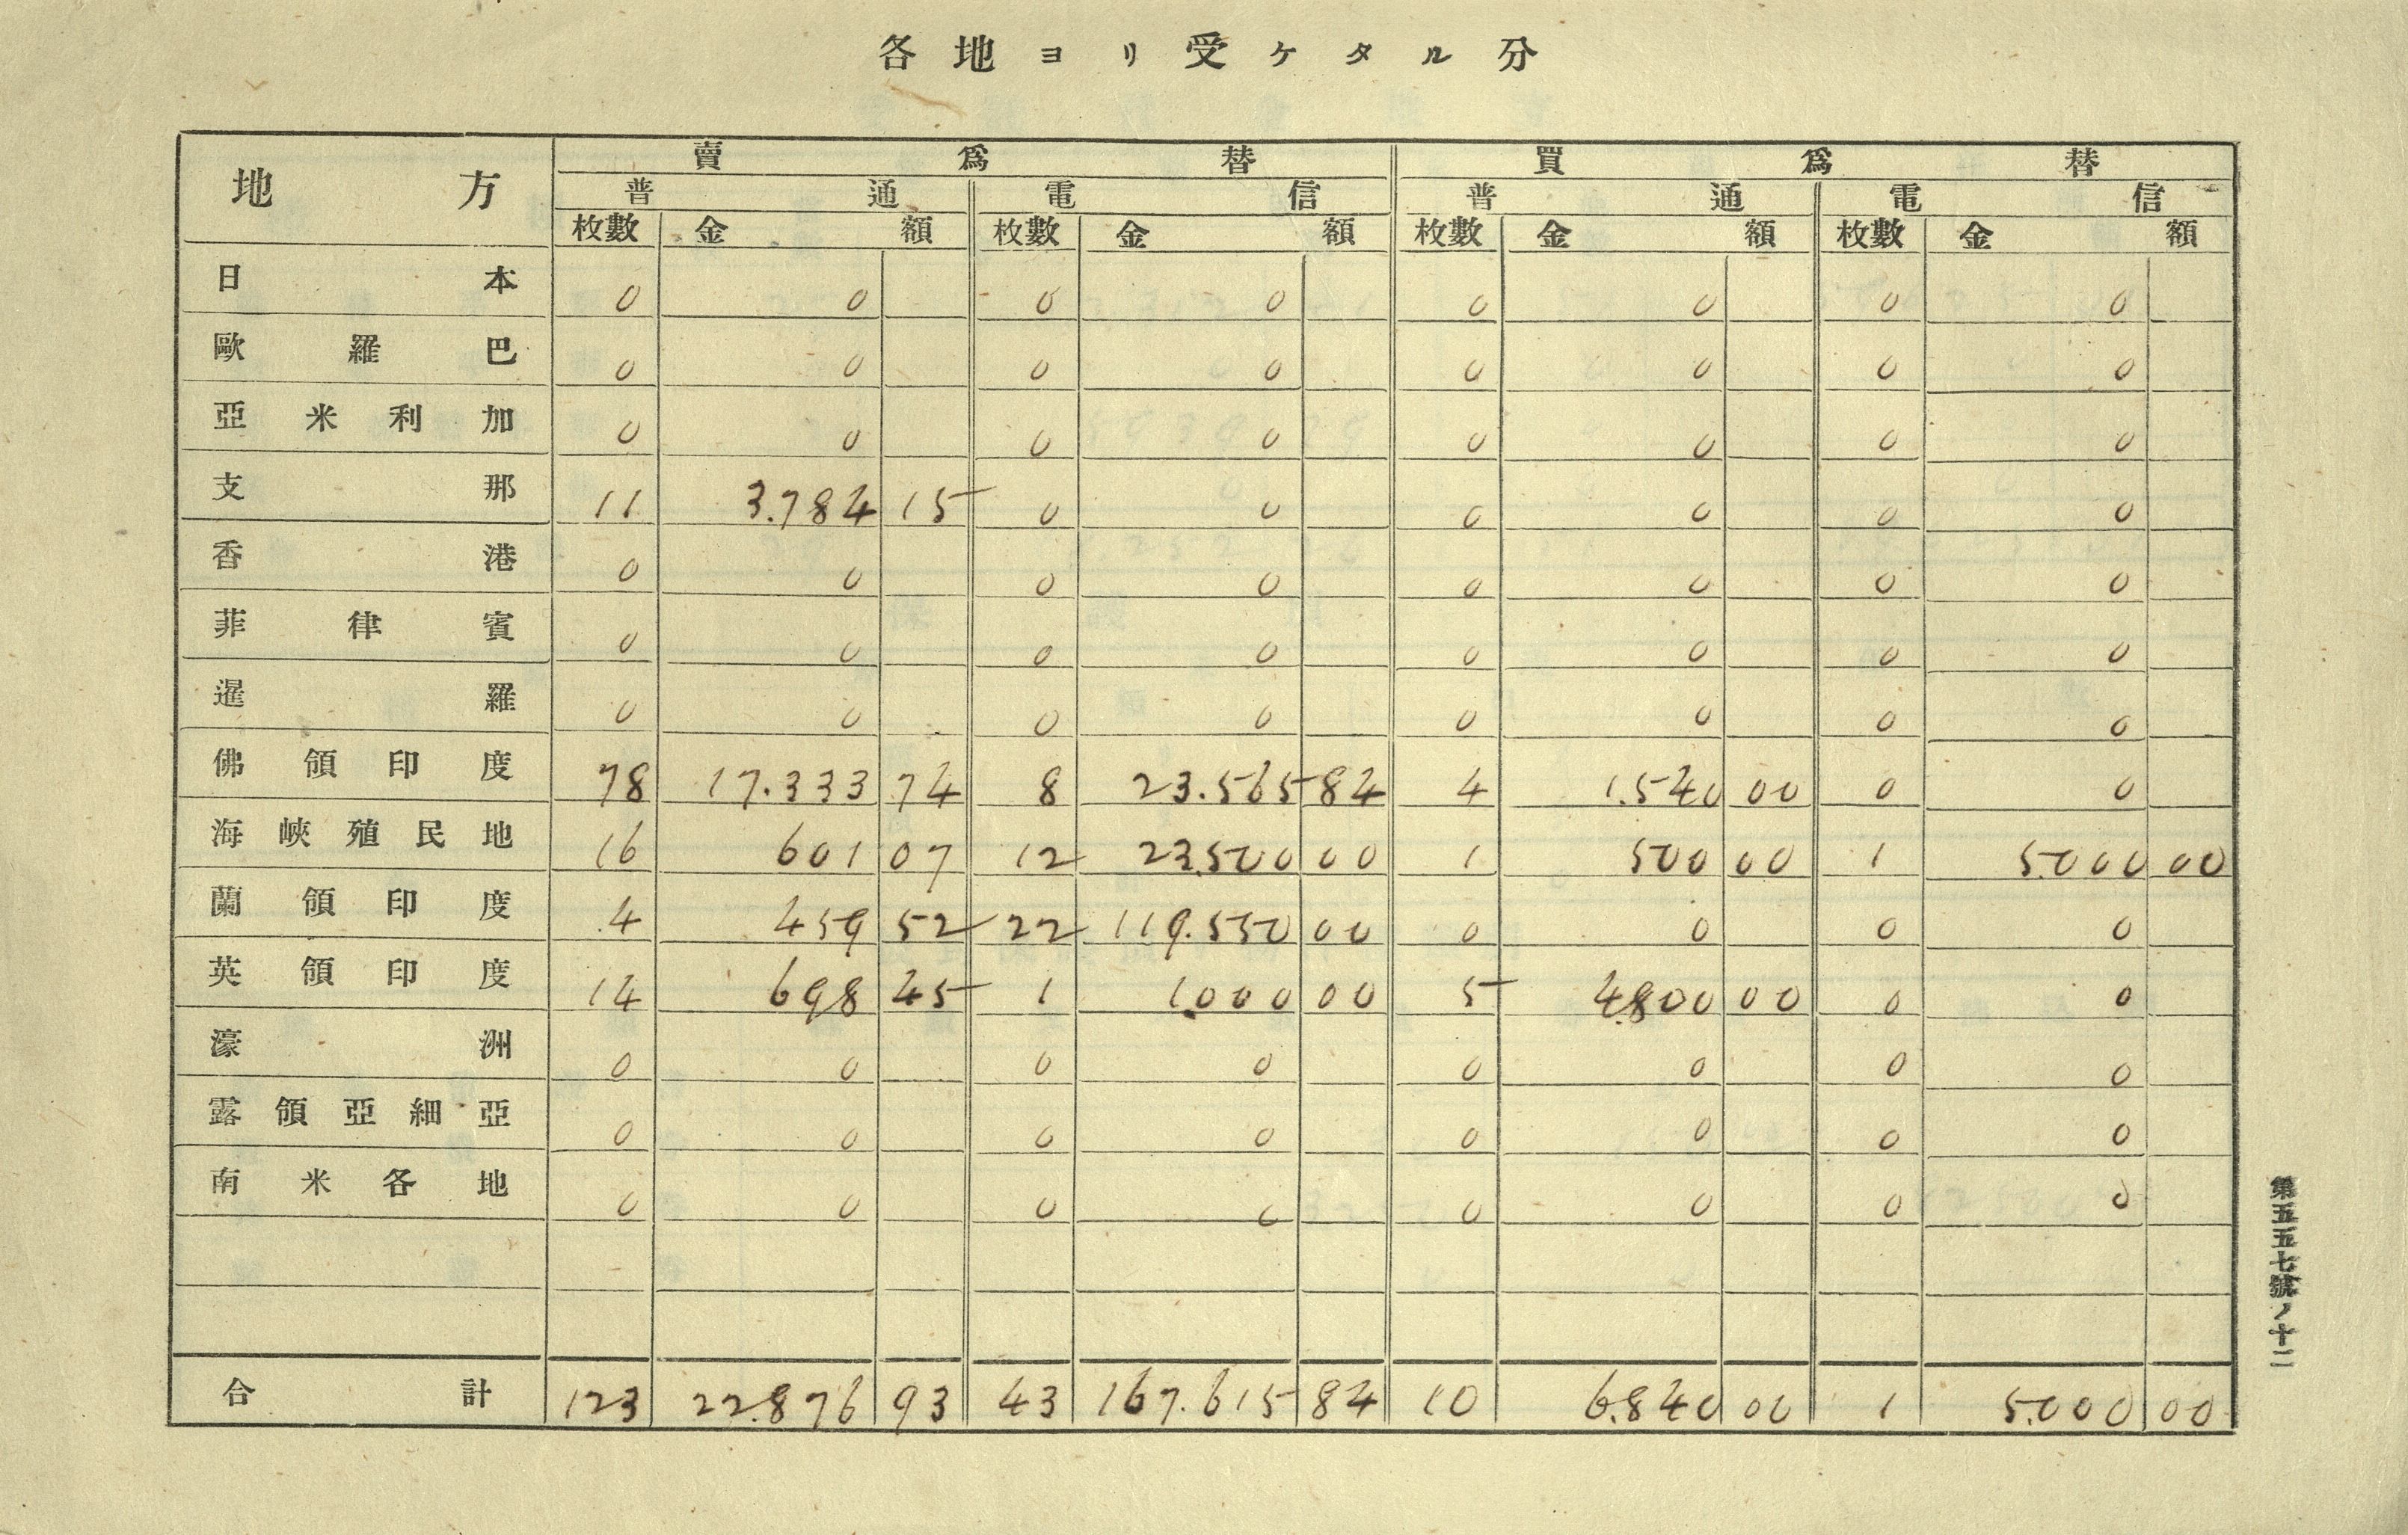 各地ヨリ受ケタル分
地方 賣爲替 買爲替
普通 電信 普通 電信
枚數 金額 枚數 金額 枚數 金額 枚數 金額
日本 0 0 0 0 0 0 0 0
歐羅巴 0 0 0 0 0 0 0 0
亞米利加 0 0 0 0 0 0 0 0
支那 11 3.784 15 0 0 0 0 0 0
香港 0 0 0 0 0 0 0 0
菲律賓 0 0 0 0 0 0 0 0
暹羅 0 0 0 0 0 0 0 0
佛領印度 78 17.333 74 8 23.565 84 4 1.540 00 0 0
海峽殖民地 16 601 07 12 23.500 00 1 500 00 1 5.000 00
蘭領印度 4 459 52 22 119.550 00 0 0 0 0
英領印度 14 698 45 1 1.000 00 5 4.800 00 0 0
濠洲 0 0 0 0 0 0 0 0
露領亞細亞 0 0 0 0 0 0 0 0
南米各地 0 0 0 0 0 0 0 0
合計 123 22.876 93 43 167.615 84 10 6.840 00 1 5.000 00
第五五七號ノ十二